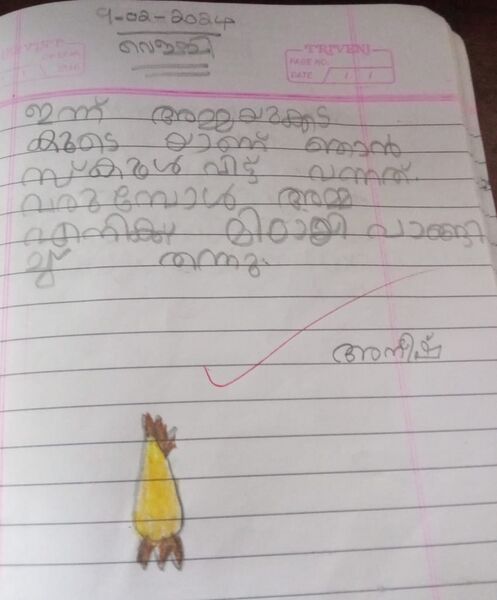 9-02-2024
വെള്ളി
TRIVENI
PAGE NO.:
DATE / /
ഇന്ന് അമ്മയുടെ
കൂടെ യാണ് ഞാൻ
സ്കൂൾ വിട്ട് വന്നത്.
വരുമ്പോൾ അമ്മ
എനിക്ക് മിഠായി വാങ്ങി
ച്ച് തന്നു.